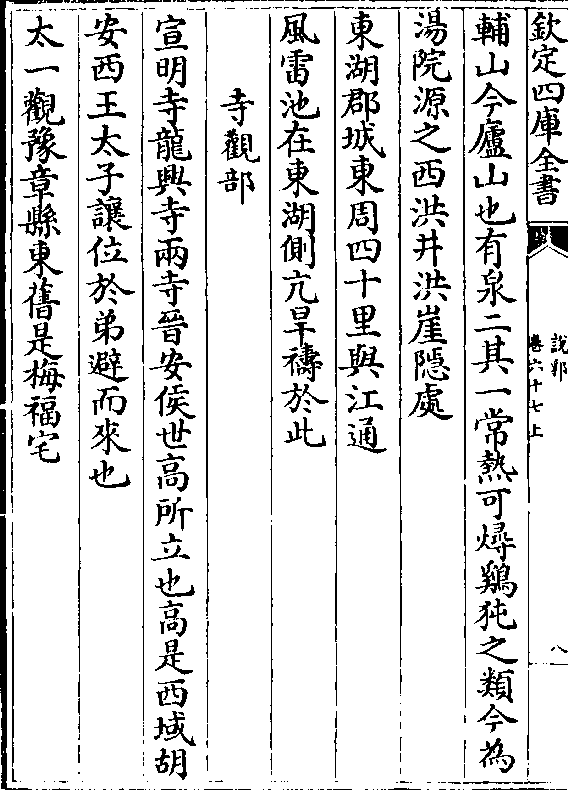 欽定四庫全書
說郛
卷六十七上
八
輔山今廬山也有泉二其一常熱可燖鷄㹠之類今為
湯院源之西洪井洪崖隱處
東湖郡城東周四十里與江通
風雷池在東湖側亢旱禱於此
寺觀部
宣明寺龍興寺兩寺晉安侯世高所立也高是西域胡
安西王太子讓位於弟避而來也
太一觀豫章縣東舊是梅福宅